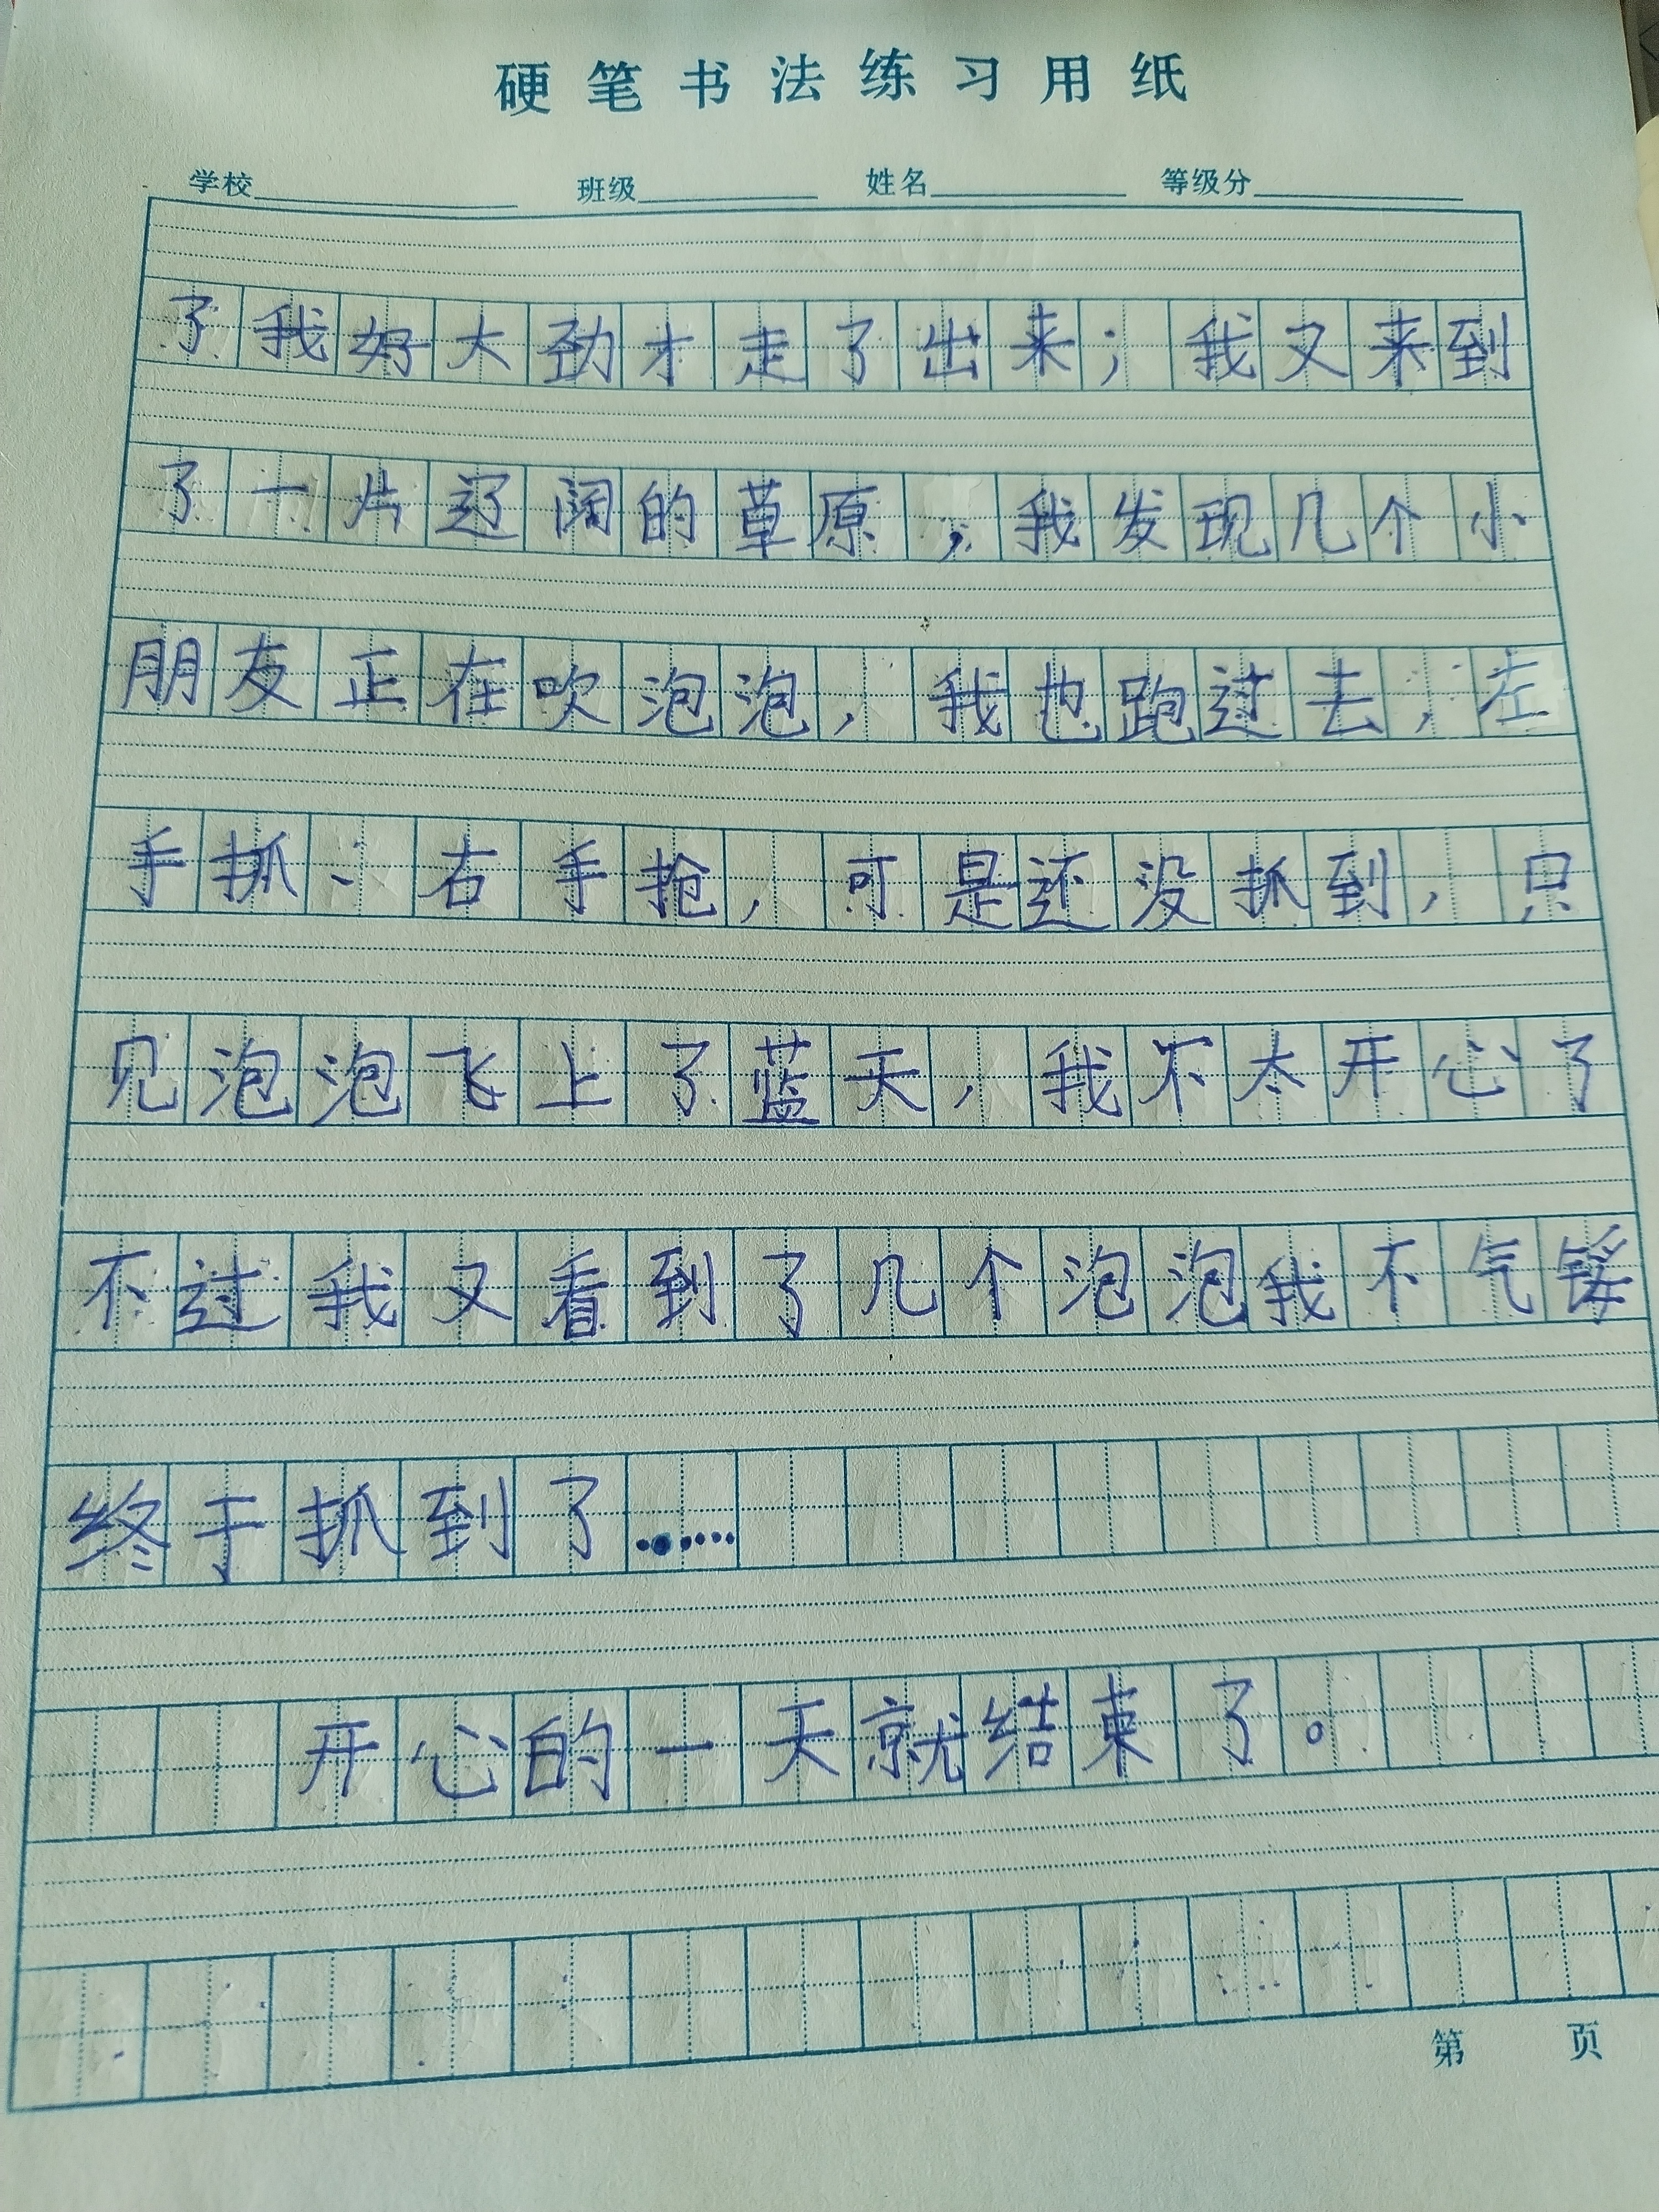 硬笔书法练习用纸
学校 班级 姓名 等级分
了我好大劲才走了出来；我又来到
了一片辽阔的草原；我发现几个小
朋友正在吹泡泡，我也跑过去，左
手抓、右手抢，可是还没抓到，只
见泡泡飞上了蓝天，我不太开心了
不过我又看到了几个泡泡我不气馁
终于抓到了……
开心的一天就结束了。
第 页